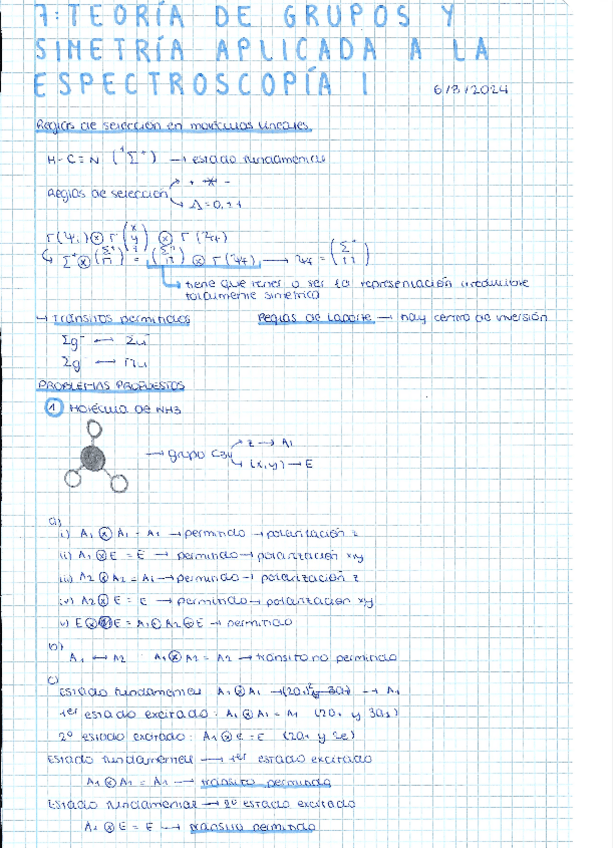 7: TEORÍA DE GRUPOS Y
SIMETRÍA APLICADA A LA
ESPECTROSCOPÍA I
6/3/2024
Reglas de selección en moléculas lineales
H-C≡N (¹Σ⁺) → estado fundamental
Reglas de selección
Δ=0, ±1
Γ(Ψᵢ) ⊗ Γ (x y z) ⊗ Γ(Ψf)
Σ⁺ ⊗ (Σ⁺ Π) = (Σ⁺ Π) ⊗ Γ(Ψf) → Ψf = (Σ⁺ Π)
tiene que tener o ser la representación irreducible
totalmente simétrica
→ Tránsitos permitidos
Reglas de Laporte → hay centro de inversión
Σg⁻ → Σu⁻
Σg → Πu
PROBLEMAS PROPUESTOS
1 Molécula de NH3
→ grupo C3v
z → A1
(x,y) → E
a)
i) A1 ⊗ A1 = A1 → permitido → polarización z
ii) A1 ⊗ E = E → permitido → polarización x,y
iii) A2 ⊗ A2 = A1 → permitido → polarización z
iv) A2 ⊗ E = E → permitido → polarización x,y
v) E ⊗ E = A1 ⊕ A2 ⊕ E → permitido
b)
A1 → A2 A1 ⊗ A2 = A2 → tránsito no permitido
c)
Estado fundamental A1 ⊗ A1 → A1
1er estado excitado: A1 ⊗ A1 = A1 (2a1 y 3a1)
2º estado excitado: A1 ⊗ e = E (2a1 y 2e)
Estado fundamental → 1er estado excitado
A1 ⊗ A1 = A1 → tránsito permitido
Estado fundamental → 2º estado excitado
A1 ⊗ E = E → tránsito permitido